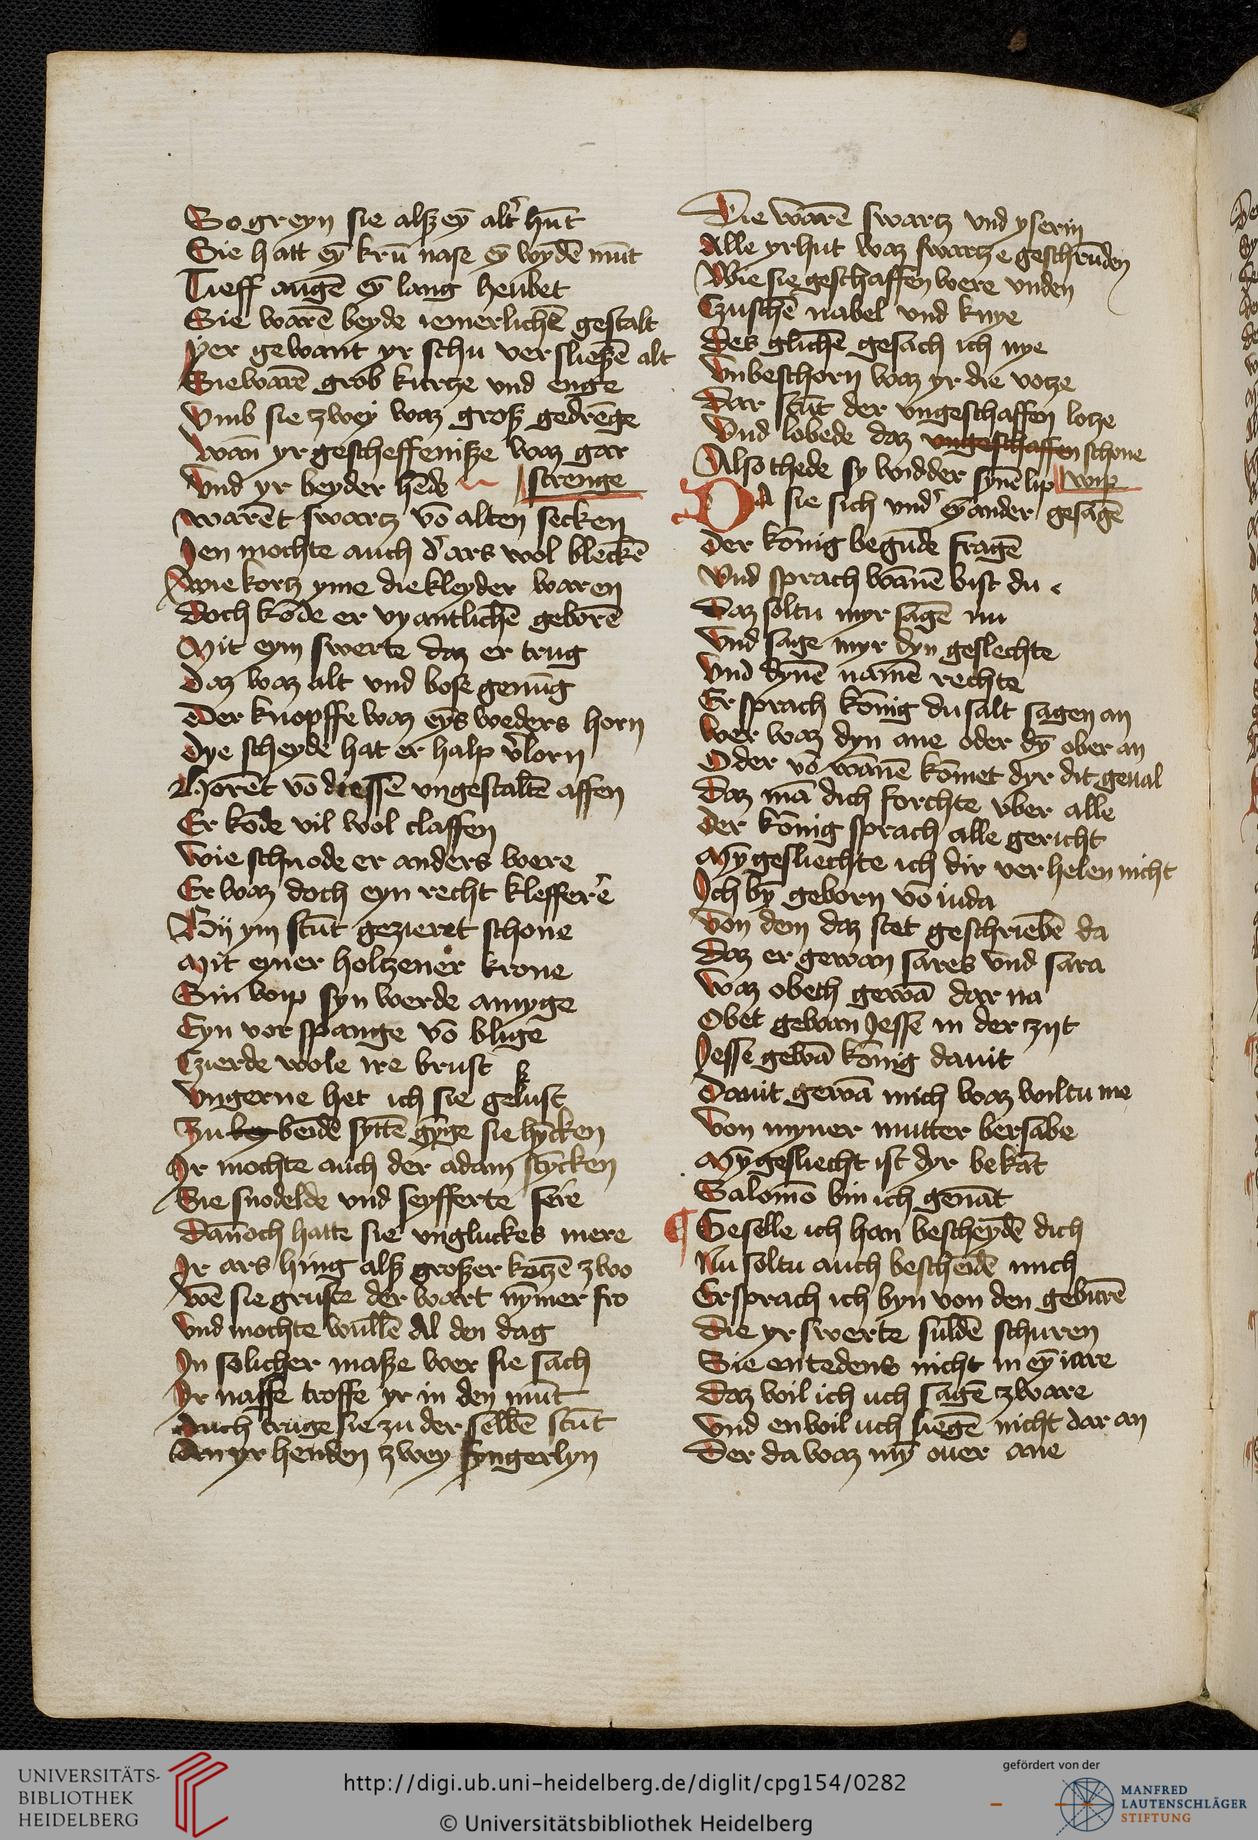 So greyn sie alß eȳ alt' hūt
Sie hatt eȳ krū nase eȳ wydē mūt
Tieff augē eȳ lang heubet
Sie warē beyde iemerlichē gestalt
Yer gewant yr schu versließē alt
Sie warē grob kurtze vnd enge
Vmb sie zwey waz groß gedrēge
Wān yr gescheffeniße waz gar
Vnd yr beyder hēde strenge
Warēt swartz vō alten secken
Jen mochte auch d' ars wol bleckē
Wie kortz yme die kleyder waren
Doch kōde er vyantlichē geborē
Mit eym swerte daz er trug
Daz waz alt vnd bose genūg
Der knopffe waz eyṡ weders horn
Dye scheyde hat er halp v'lorn
Horēt vō diessē vngestaltē affen
Er kōde vil wol claffen
Wie schnode er anders were
Er waz doch eyn recht kleffer'e
Bij ym stūt gezieret schone
Mit eyner holtzener krone
Sin wip syn werde amyge
Eyn vorspange vō blige
Czierde wole ire brust
Vngerne het ich sie gelust
Zu bey beidē syttē gȳge sie hȳcken
Ir mochte auch der adam stȳcken
Sie snodelde vnd seyfferte sere
Dannoch hatte sie vngluckes mere
Ir ars hing alß großer kotzē zwo
Wē sie gruste der wart nȳmer fro
Vnd mochte wullē Al den dag
In solicher maße wer sie sach
Ir nasse troffe yr in den mūt
Auch truge sie zu der selbē stūt
An yr henden zwey fyngerlyn
Die warē swartz vnd yserin
Alle yr hut waz swartze geschrūden
Wie sie geschaffen were vnden
Czuschē nabel vnd knye
Des glichē gesach ich nye
Vnbeschorn waz yr die votze
Dar stūt der vngeschaffen lotze
Vnd lobede daz vngeschaffen schone
Also thede sy widder synē lip wip
Da sie sich vnd' eȳander gesagē
Der kōnig begūde fragē
Vnd sprach wānē bist du
Daz soltu myr sagē nu
Vnd sage myr dyn geslechte
Vnd dynē namē rechte
Er sprach kōnig du salt sagen an
Wer waz dyn ane oder dȳ ober an
Oder vō wānē kōmet dyr dit geual
Daz mā dich forchte vber alle
Der kōnig sprach alle gericht
Mȳ gesliechte ich dir verhelen nicht
Ich bȳ geborn vō iuda
Von dem daz stet geschriebē da
Daz er gewan fares vnd sara
Waz obech gewā dar na
Obet geborn Jesse in der zyt
Jesse gewā kōnig dauit
Dauit gewā mich waz wiltu me
Von myner mutter bersabe
Mȳ gesliecht ist dyr bekāt
Salomō bin ich genāt
Geselle ich han bescheydē dich
Nu soltu auch bescheidē mich
Er sprach ich byn von den geburē
Die yr swerte suldē schuren
Sie entedens nicht in eȳ iare
Daz wil ich uch sagē zware
Vnd enwil uch liegē nicht dar an
Der da waz mȳ ouer ane
UNIVERSITÄTS-
BIBLIOTHEK
HEIDELBERG
http://digi.ub.uni-heidelberg.de/diglit/cpg154/0282
© Universitätsbibliothek Heidelberg
gefördert von der
MANFRED
LAUTENSCHLÄGER
STIFTUNG